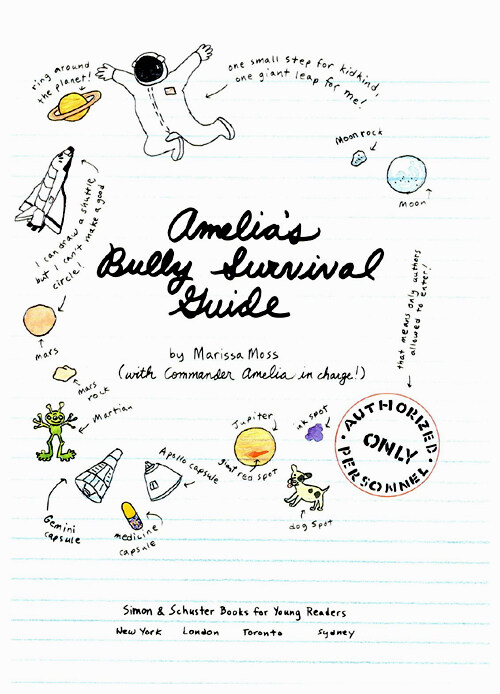 ring around
the planet!
one small step for kidkind,
one giant leap for me!
Moon rock
Moon
I can draw a shuttle
but I can't make a good
circle!
Amelia's
Bully Survival
Guide
that means only authors
allowed to enter!
mars
by Marissa Moss
(with Commander Amelia in charge!)
mars
rock
Martian
Jupiter
ink spot
AUTHORIZED
ONLY
PERSONNEL
Apollo capsule
giant red spot
Gemini
capsule
medicine
capsule
dog spot
Simon & Schuster Books for Young Readers
New York London Toronto Sydney